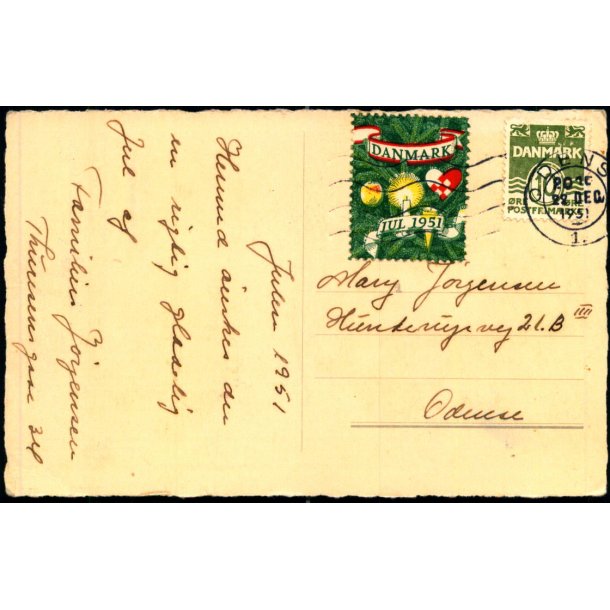 Julen 1951
Herved ønskes du
en rigtig Glædelig
Jul af
Familien Jørgensen
34
DANMARK
JUL 1951
DANMARK
10
ØRE
POSTFRIMÆRKE
ENS
22 DEC
1951
1.
Mary Jørgensen
Hunderupvej 21.B III
Odense